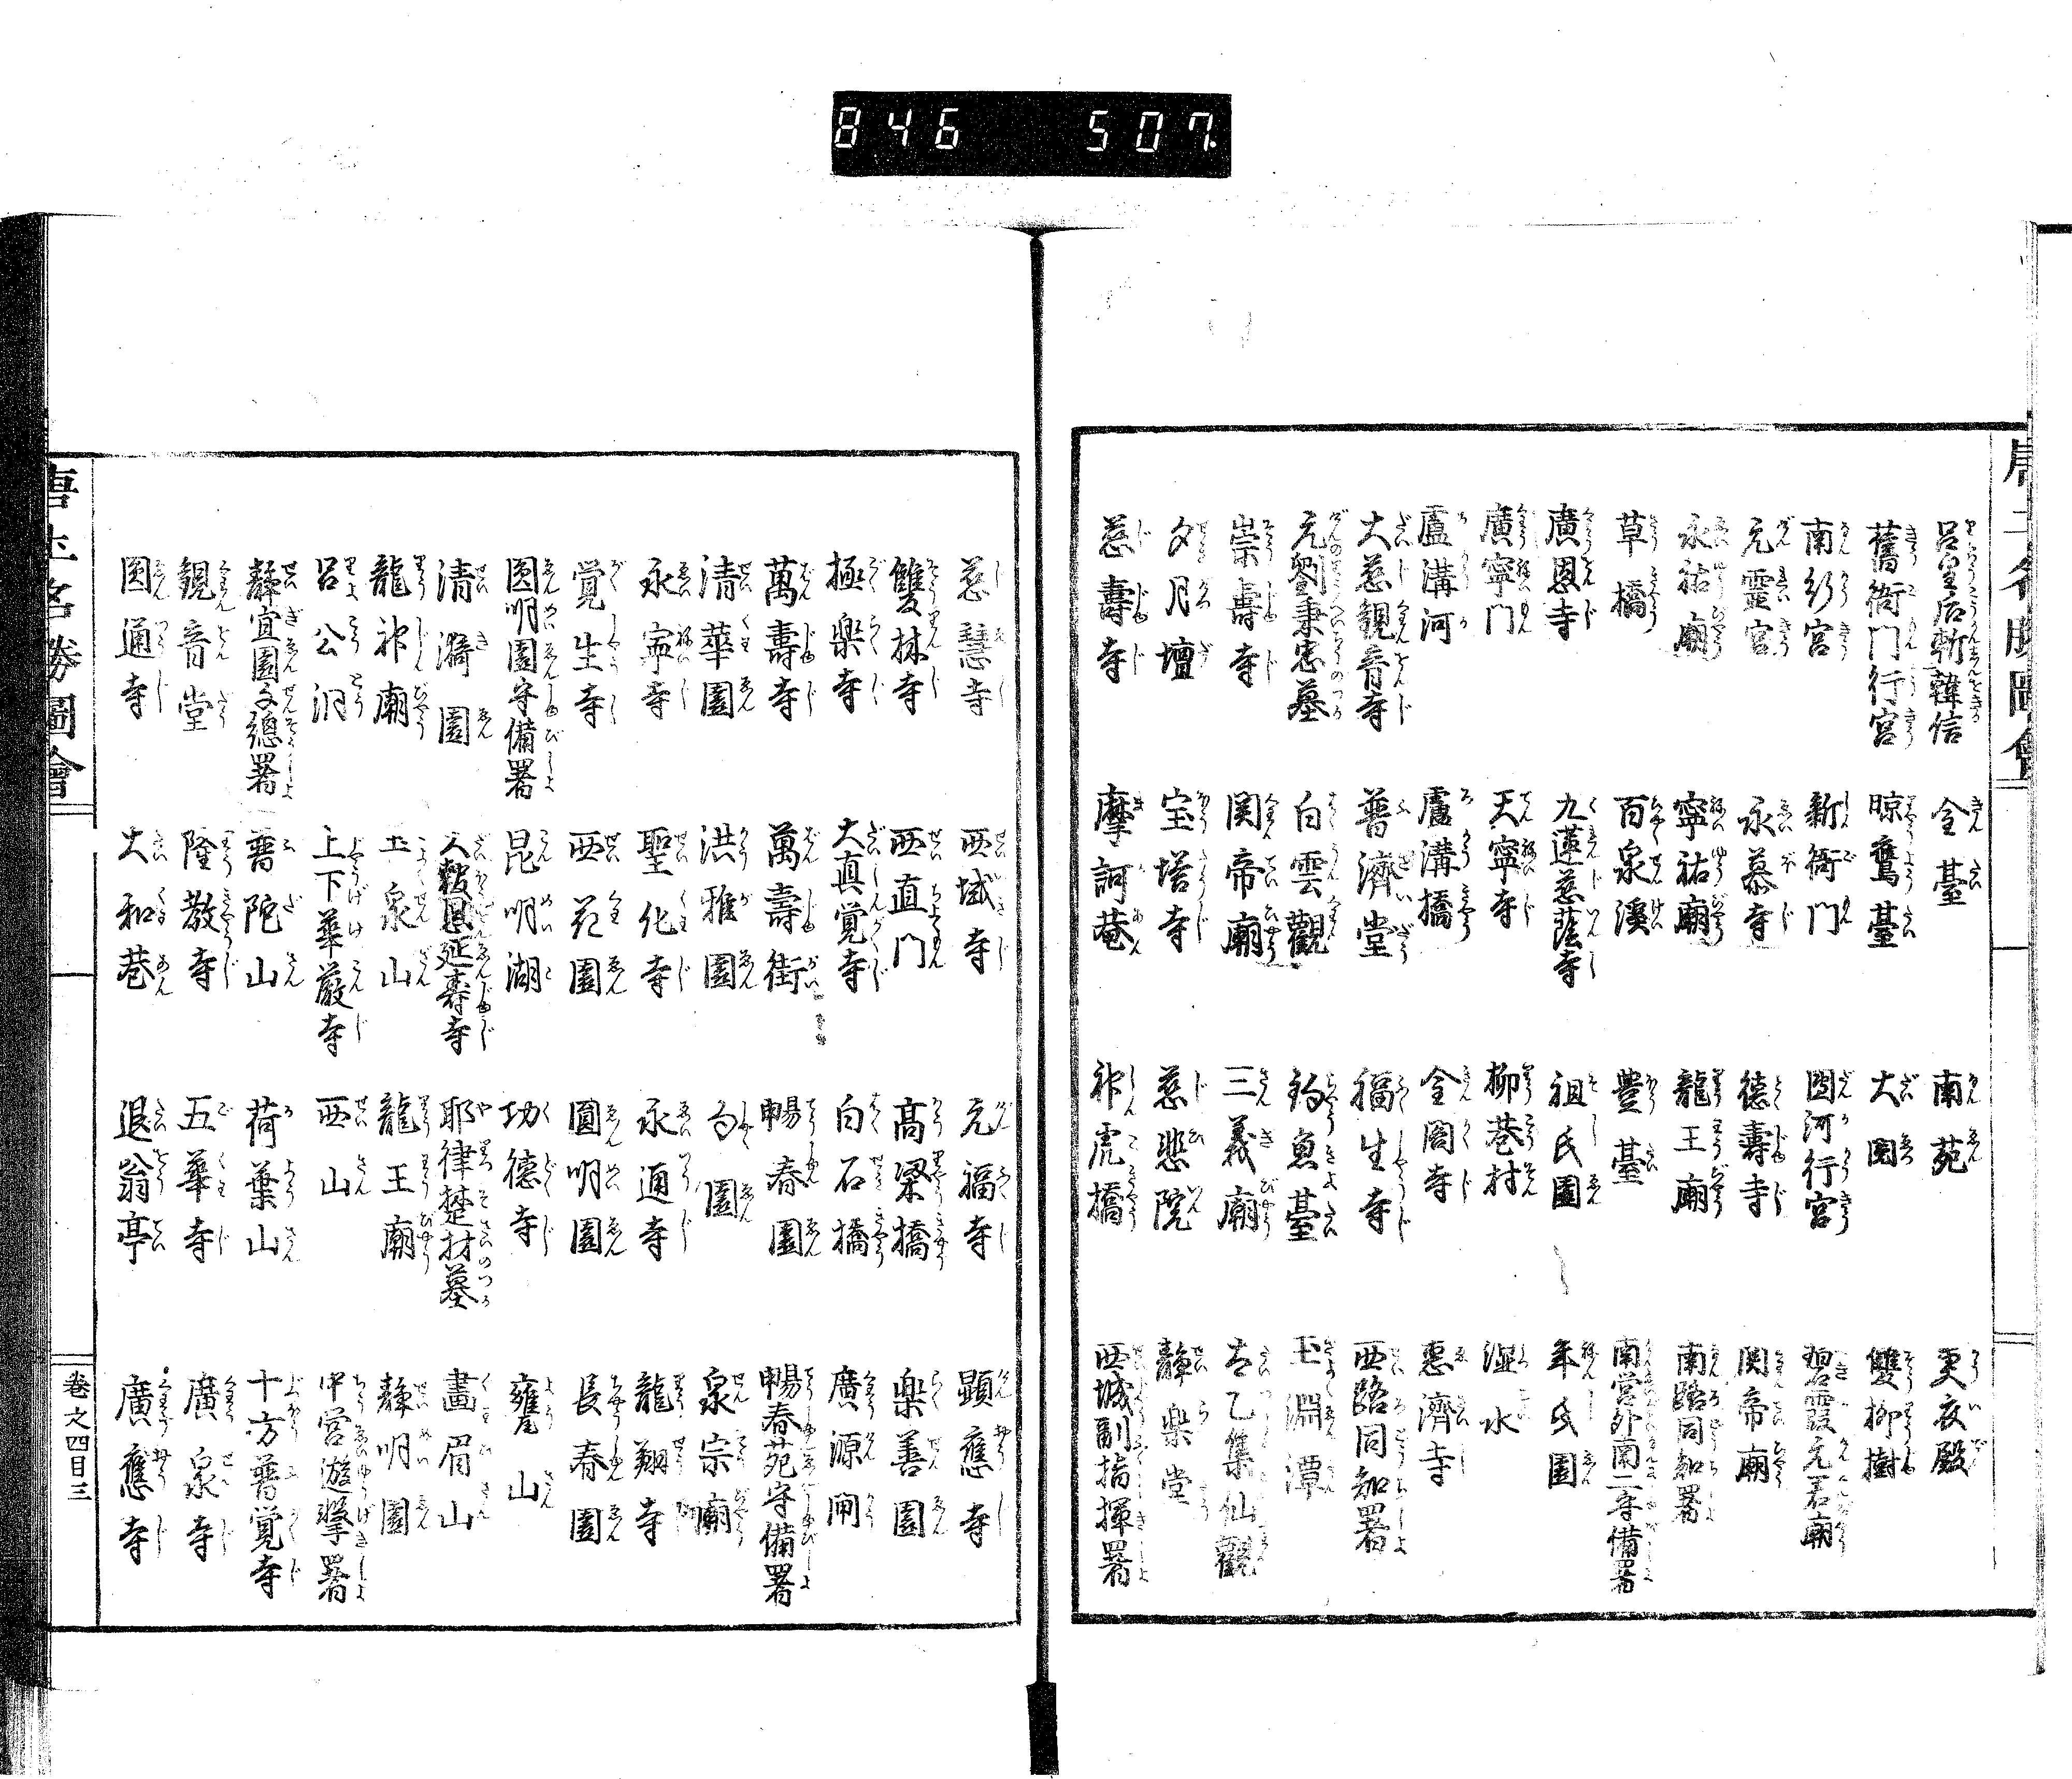 846 507
呂皇后斬韓信 金臺 南苑 更衣殿
舊衙门行宮 晾鷹臺 大囿 雙柳樹
南行宮 新衙门 囲河行宮 碧霞元君廟
元靈宮 永慕寺 德壽寺 関帝廟
永祐廟 寧祐廟 龍王廟 南路同知署
草橋 百泉溪 豊臺 南営外南二守備署
廣恩寺 九蓮慈蔭寺 祖氏園 年氏園
廣寧门 天寧寺 柳巷村 湿水
盧溝河 盧溝橋 金閣寺 惠濟寺
大慈觀音寺 普濟堂 福生寺 西路同知署
元劉秉忠墓 白雲觀 釣魚臺 玉淵潭
崇壽寺 関帝廟 三義廟 太乙集仙觀
夕月壇 宝塔寺 慈悲院 靜樂堂
慈壽寺 摩訶菴 神虎橋 西城副指揮署
慈慧寺 西域寺 元福寺 顕應寺
雙林寺 西直门 髙梁橋 楽善園
極楽寺 大真覚寺 白石橋 廣源閘
萬壽寺 萬壽街 暢春園 暢春苑守備署
清華園 洪雅園 勺園 泉宗廟
永寧寺 聖化寺 永通寺 龍翔寺
覚生寺 西花園 圓明園 長春園
圓明園守備署 昆明湖 功德寺 甕山
清漪園 大報恩延壽寺 耶律楚材墓 畫眉山
龍神廟 玉泉山 龍王廟 靜明園
呂公洞 上下華嚴寺 西山 中営遊擊署
靜宜園千總署 普陀山 荷葉山 十方普覚寺
觀音堂 隆教寺 五華寺 廣泉寺
圓通寺 大和菴 退翁亭 廣應寺
唐土名勝圖會
卷之四目三